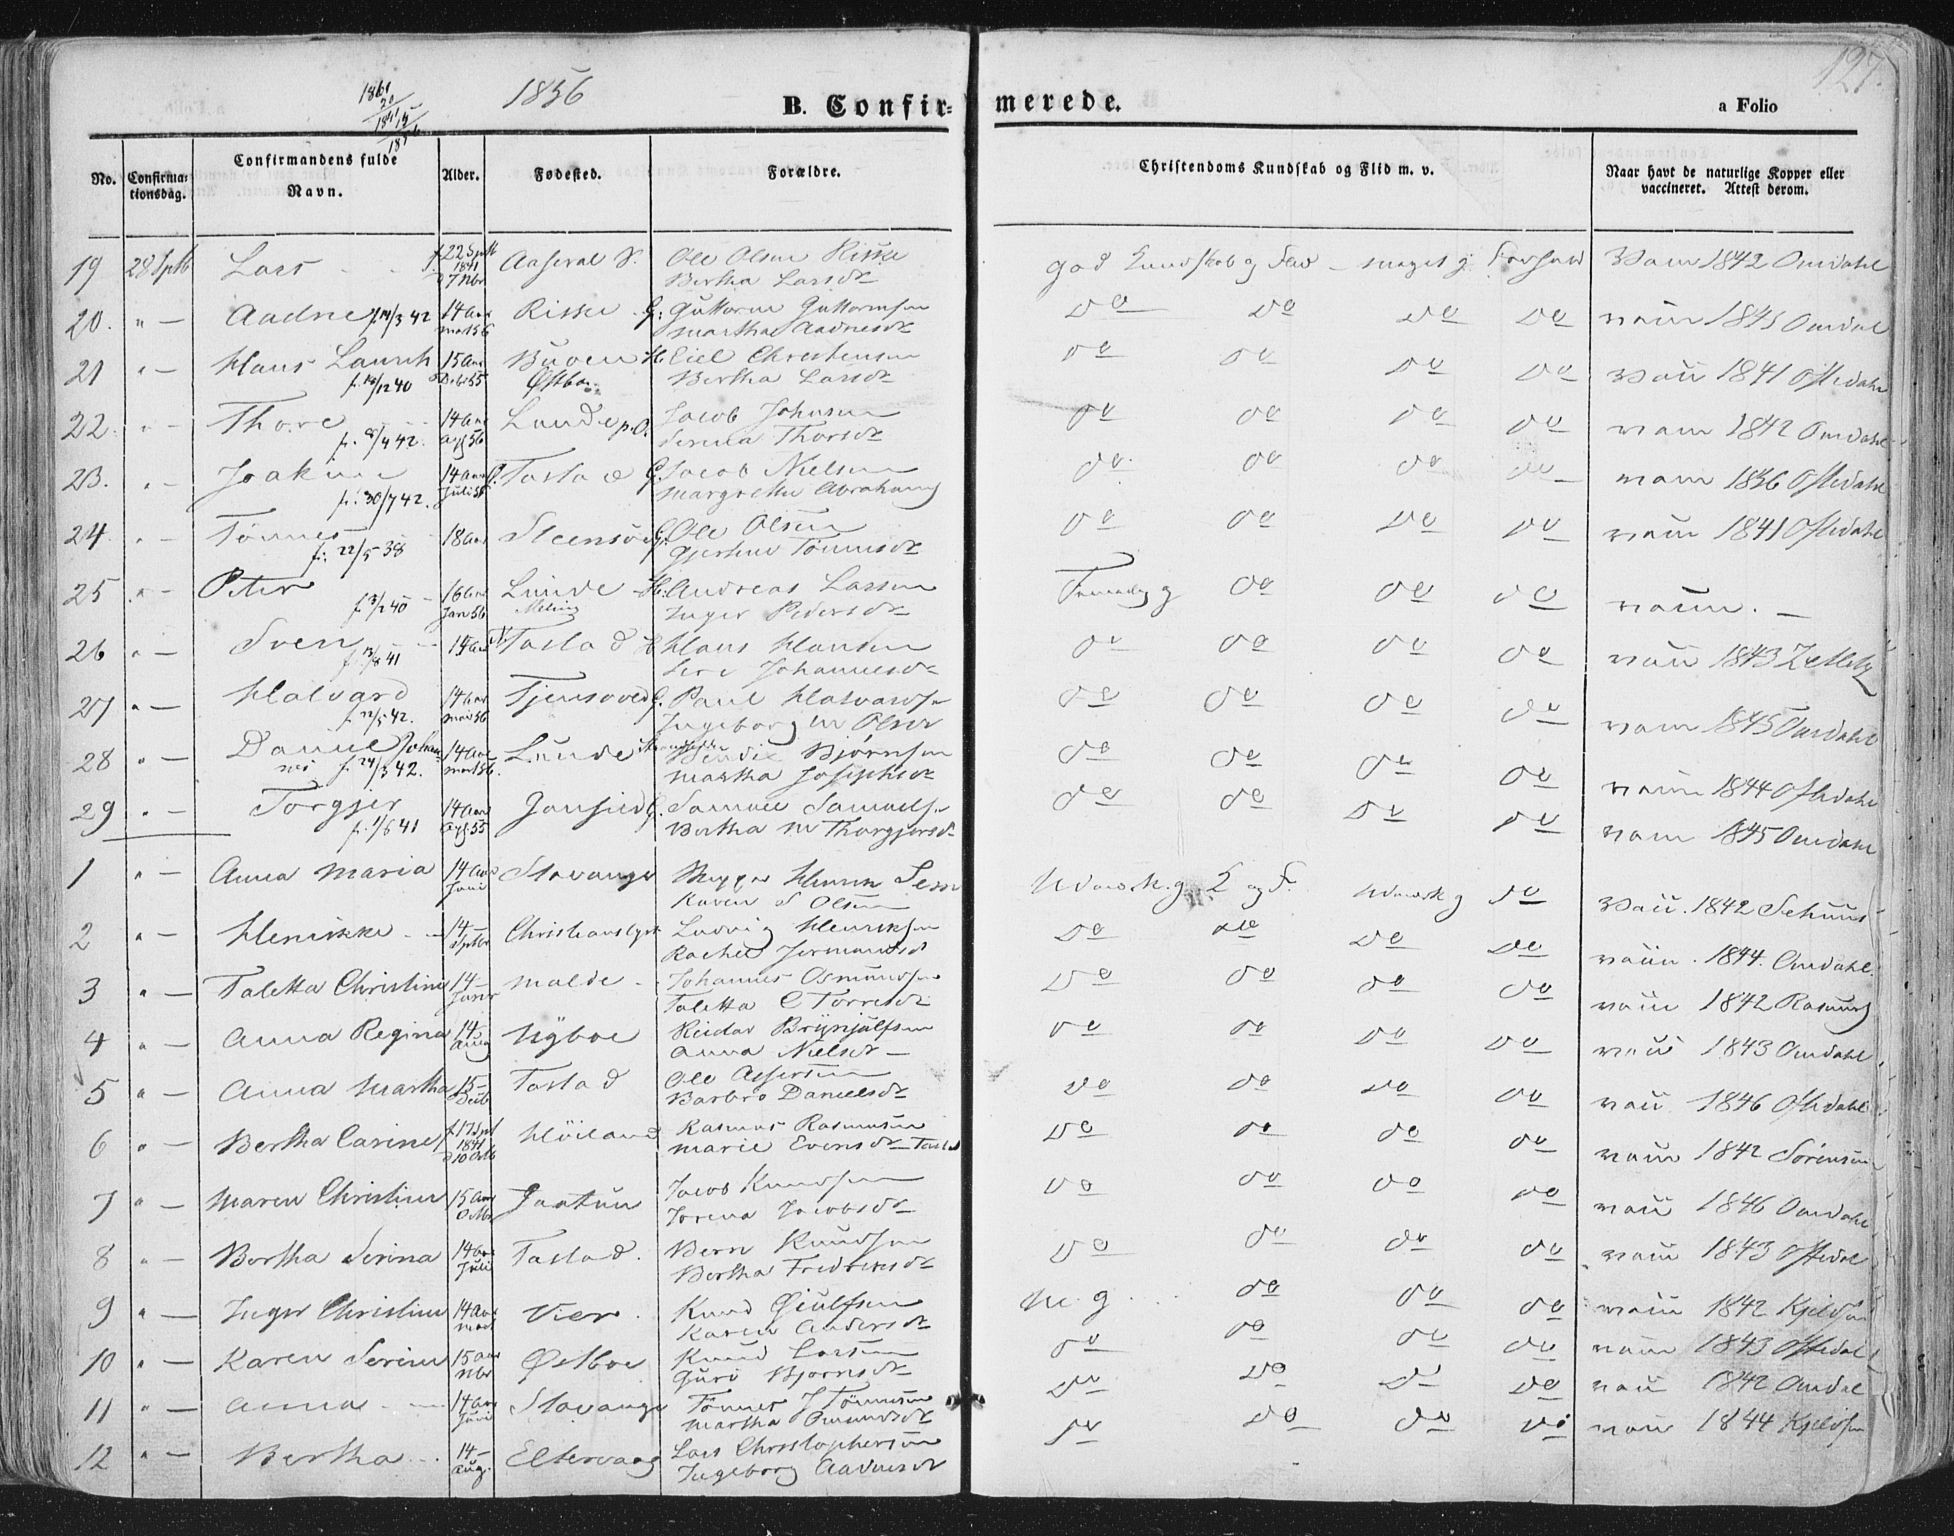 127.
1856
B. Confirmerede.
a Folio
No. Confirmationsdag. Confirmandens fulde Navn. Alder. Fødested. Forældre. Christendoms Kundskab og Flid m. v. Naar havt de naturlige Kopper eller vaccineret. Attest derom.
19 28 Septb Lars f. 22 Septb 1841 d 7 Nbr Aaseral Ole Olsen Riske
Bertha Larsdr god Kundskab og Flid - meget g Forhold Vacc 1842 Omdahl
20. " — Aadne f. 14/3 42 14 Aar Marts 56 Riske G. Guttorm Guttormsen
Martha Aadnesdr Do Do Do Do vacc 1845 Omdal
21 " — Hans Laurits f. 12/12 40 15 Aar Debr 55 Buoen Østboe Eiel Christensen
Bertha Larsdr do do Do Do Vacc 1841 Oftedahl
22. " — Thore f. 8/4 42. 14 Aar Apl 56 Lunde p. O. Jacob Johnsen
Serina Thorsdr do do do do vacc 1842 Omdahl
23. " — Joakim f. 30/7 42. 14 Aar Juli 56 Tastad G. Jacob Nielsen
Margrethe Abrahams do do do do vacc 1856 Oftedahl
24 " — Tønnes f. 22/5 38 18 Aar G. Ole Olsen
Tønnesdr do do Do Do vacc 1841 Oftedahl
25 " — Peter f. 3/1 40 16 Aar Jan 56 Lunde Meling Andreas Larsen
Inger Pedersdr do do do vacc. —
26 " — Sven f. 13/8 41 15 Aar Tastad H Hans Hansen
Johannesdr do do do do vacc 1843 Zetlitz
27 " — Halvard f. 12/5 42. 14 Aar Mai 56 Tjensvold G. Paul Halvards.
Ingeborg M Olsdr do do do do vacc 1845 Omdahl
28 " — Daniel Johannes f. 24/3 42. 14 Aar Marts 56. Lunde Bendix Bjørnsen
Martha Josephsdr do do do do vacc 1844 Oftedahl
29 " — Torgjer f. 1/6 41 14 Aar 55 G. Samuel Samuels.
Bertha M Thorgjersdr do do Do do vacc 1845 Omdahl
1 " — Anna Maria 14 Aar Juni Stavanger Henrik
Karen S Olsen Udmærk. g K og F. Udmærk g do Vacc. 1842
2 " — Henrikke 14 — Septbr Ludvig Henriksen
Rachel Do do Do do vacc. 1844. Omdahl.
3 " — Taletta Christine 14 — Janr Malde Johannes Osmundsen
Taletta C Torresdr Do do do do vacc 1842
4 " — Anna Regina 14 — Aug Nyboe Reidar Brynjulfsen
Anna Nielsdr — do do do do vacc 1843 Omdahl
5 " — Anna Martha 15 — Debr Tastad Ole Assersen
Barbro Danielsdr do do do do vacc 1846 Oftedahl
6 " — Bertha Carine f. 17 Sept 1841 d 10 Octb Høiland Rasmus Rasmussen
Marie Evensdr — Tasta Do do do do vacc 1842 Sørensen
7 " — Maren Christine 15 Aar Octbr Jaatun Jacob Knudsen
Jorina Jacobsdr do do do do vacc 1846 Omdahl
8 " — Bertha Serina 14 Aar Juli Tastad. Bern Knudsen
Bertha Fredriksdr do do do do vacc 1843 Oftedal
9 " — Inger Christine 14 Aar Mai Vier Knud Øiulfsen
Karen Andersdr M. g. do do do vacc 1842
10 " — Karen Serine 15 Aar Nbr Østboe Knud Larsen
Guri Bjornsdr do do do do vacc 1843 Oftedal
11 " — Anna 14 Aar Juni Stavanger Tønnes J Tønnesen
Martha Omundsdr do do do do vacc 1842 Omdal
12 " — Bertha 14 — Aug. Eltervaag Lars Christophersen
Ingeborg Aadnesdr do do do do vacc 1844